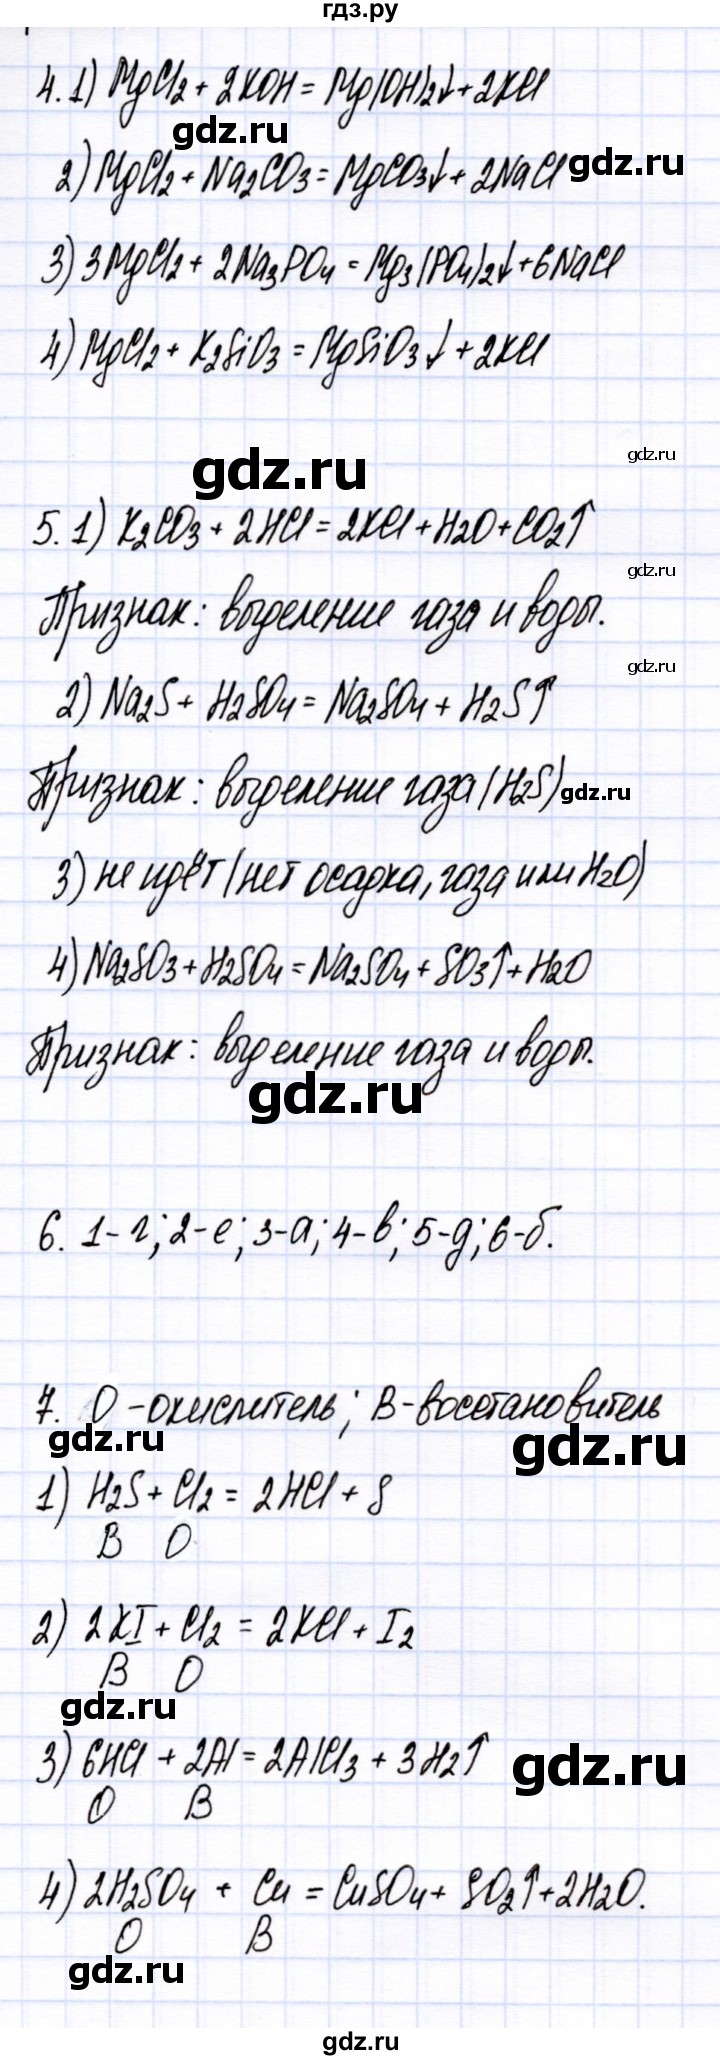 гдз.ру
4. 1) MgCl2 + 2KOH = Mg(OH)2↓ + 2KCl
gdz.ru
2) MgCl2 + Na2CO3 = MgCO3↓ + 2NaCl
gdz.ru
3) 3MgCl2 + 2Na3PO4 = Mg3(PO4)2↓ + 6NaCl
4) MgCl2 + K2SiO3 = MgSiO3↓ + 2KCl
gdz.ru
gdz.ru
5. 1) K2CO3 + 2HCl = 2KCl + H2O + CO2↑
gdz.ru
Признак: выделение газа и воды.
gdz.ru
2) Na2S + H2SO4 = Na2SO4 + H2S↑
Признак: выделение газа (H2S)
gdz.ru
3) не идёт (нет осадка, газа или H2O)
4) Na2SO3 + H2SO4 = Na2SO4 + SO3↑ + H2O
Признак: выделение газа и воды.
gdz.ru
6. 1-г; 2-е; 3-а; 4-в; 5-д; 6-б.
7. О - окислитель; В - восстановитель
gdz.ru
gdz.ru
1) H2S + Cl2 = 2HCl + S
В О
2) 2KI + Cl2 = 2KCl + I2
В О
gdz.ru
3) 6HCl + 2Al = 2AlCl3 + 3H2↑
gdz.ru
О В
4) 2H2SO4 + Cu = CuSO4 + SO2↑ + 2H2O.
О В
gdz.ru
gdz.ru